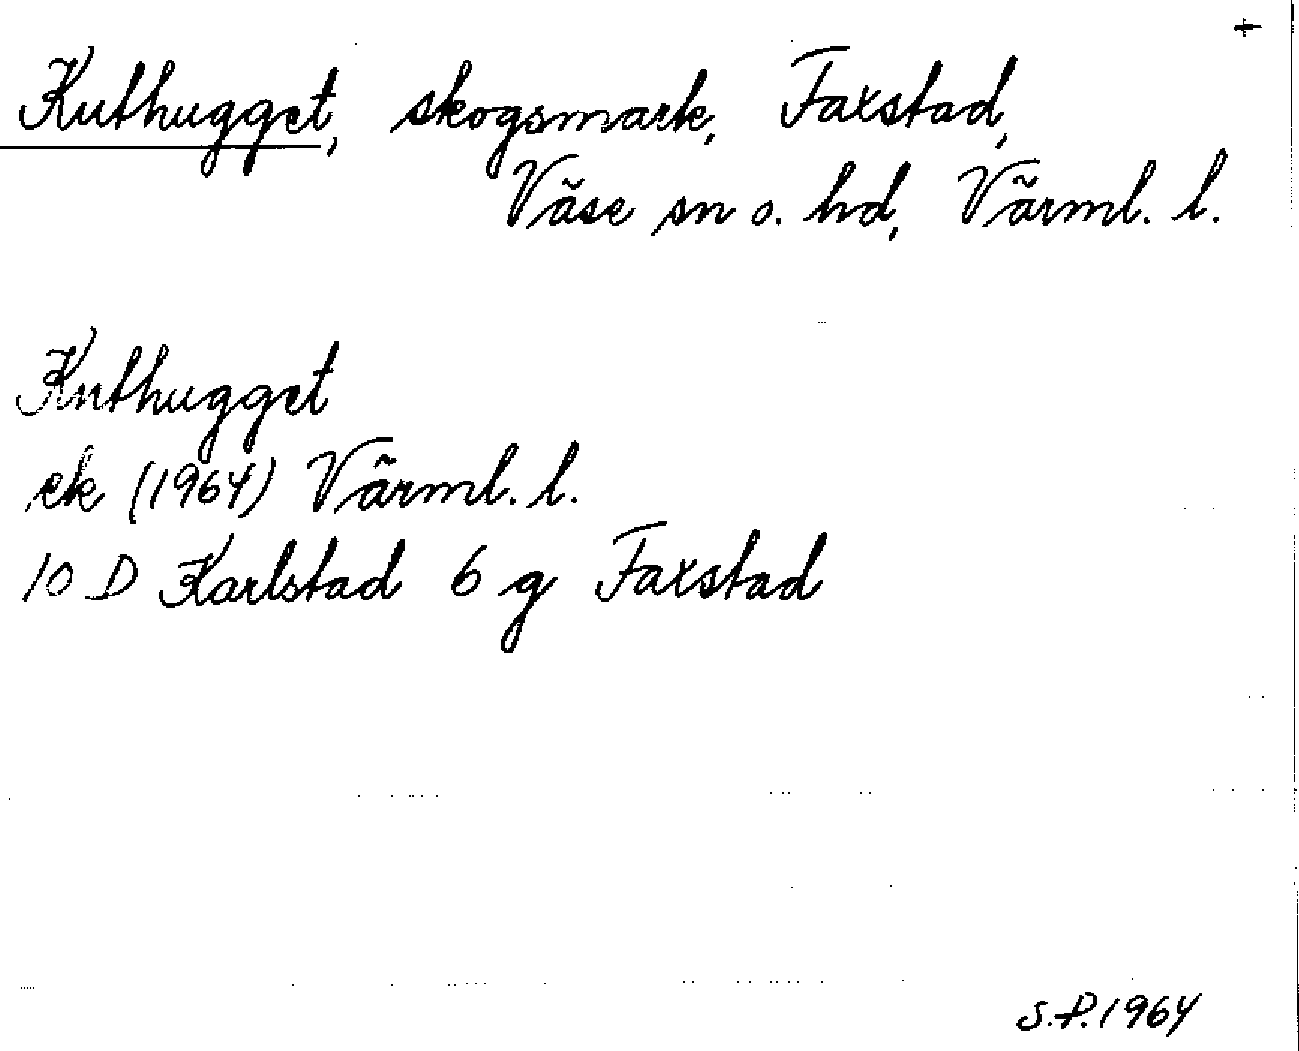 +
Kuthugget, skogsmark, Faxstad,
Väse sn o. hd, Värml. l.
Kuthugget
ek (1964) Värml. l.
10 D Karlstad 6 g Faxstad
S.P. 1964